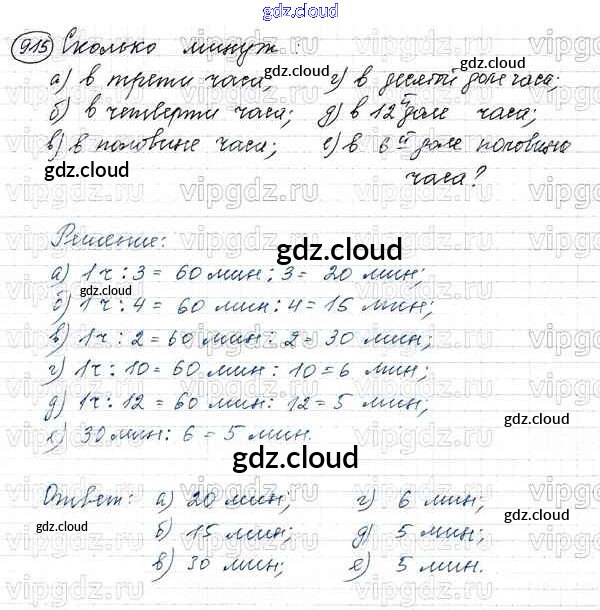 gdz.cloud
915 Сколько минут:
а) в трети часа; г) в десятой доле часа;
б) в четверти часа; д) в 12й доле часа;
в) в половине часа; е) в 6й доле половины
часа?
Решение:
а) 1 ч : 3 = 60 мин : 3 = 20 мин;
б) 1 ч : 4 = 60 мин : 4 = 15 мин;
в) 1 ч : 2 = 60 мин : 2 = 30 мин;
г) 1 ч : 10 = 60 мин : 10 = 6 мин;
д) 1 ч : 12 = 60 мин : 12 = 5 мин;
е) 30 мин : 6 = 5 мин.
Ответ: а) 20 мин; г) 6 мин;
б) 15 мин; д) 5 мин;
в) 30 мин; е) 5 мин.
gdz.cloud
vipgdz.ru